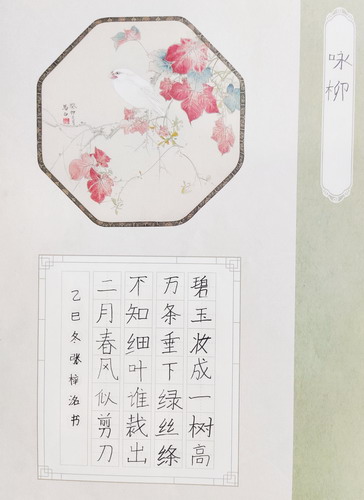 咏柳
碧玉妆成一树高
万条垂下绿丝绦
不知细叶谁裁出
二月春风似剪刀
乙巳冬 梓洺书